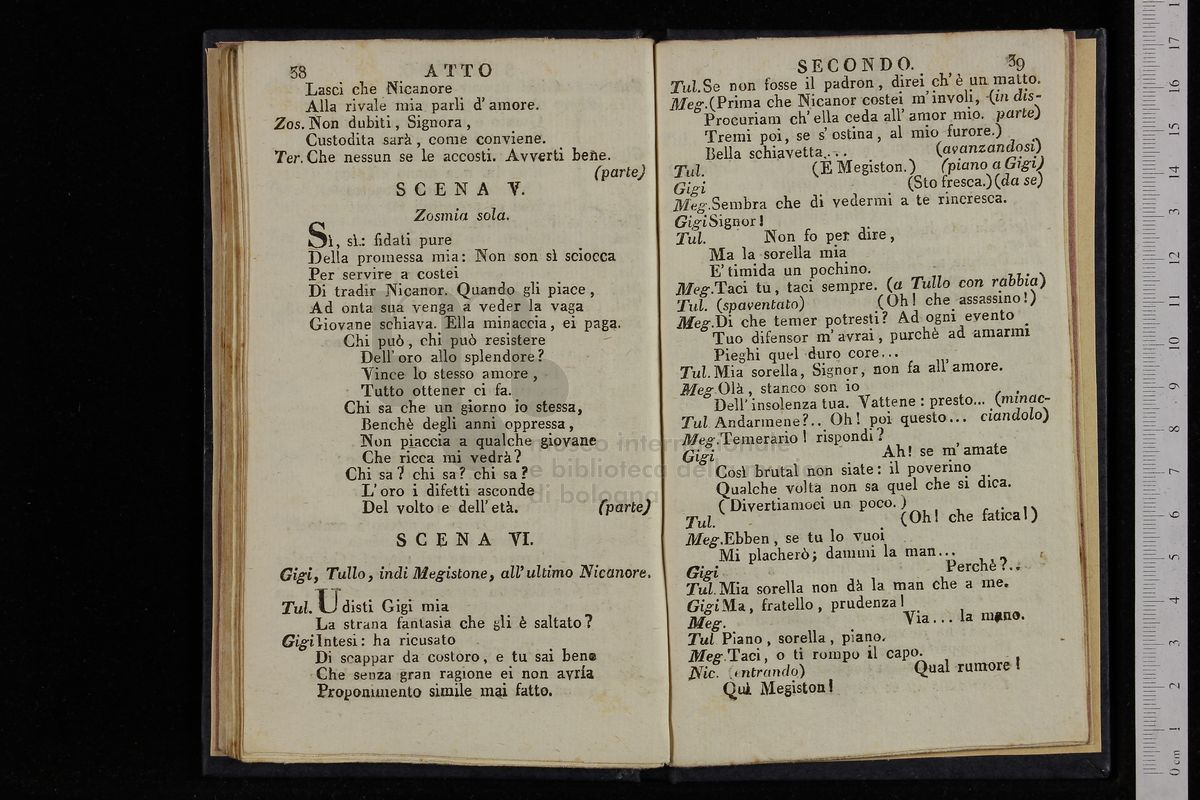 38 ATTO
Lasci che Nicanore
Alla rivale mia parli d'amore.
Zos. Non dubiti, Signora,
Custodita sarà, come conviene.
Ter. Che nessun se le accosti. Avverti bene.
(parte)
SCENA V.
Zosmia sola.
Sì, sì: fidati pure
Della promessa mia: Non son sì sciocca
Per servire a costei
Di tradir Nicanor. Quando gli piace,
Ad onta sua venga a veder la vaga
Giovane schiava. Ella minaccia, ei paga.
Chi può, chi può resistere
Dell'oro allo splendore?
Vince lo stesso amore,
Tutto ottener ci fa.
Chi sa che un giorno io stessa,
Benchè degli anni oppressa,
Non piaccia a qualche giovane
Che ricca mi vedrà?
Chi sa? chi sa? chi sa?
L'oro i difetti asconde
Del volto e dell'età. (parte)
SCENA VI.
Gigi, Tullo, indi Megistone, all'ultimo Nicanore.
Tul. Udisti Gigi mia
La strana fantasia che gli è saltato?
Gigi Intesi: ha ricusato
Di scappar da costoro, e tu sai bene
Che senza gran ragione ei non avria
Proponimento simile mai fatto.
SECONDO. 39
Tul. Se non fosse il padron, direi ch'è un matto.
Meg. (Prima che Nicanor costei m'involi, (in dis-
Procuriam ch'ella ceda all'amor mio. parte)
Tremi poi, se s'ostina, al mio furore.)
Bella schiavetta.... (avanzandosi)
Tul. (E Megiston.) (piano a Gigi)
Gigi (Sto fresca.) (da se)
Meg. Sembra che di vedermi a te rincresca.
Gigi Signor!
Tul. Non fo per dire,
Ma la sorella mia
E' timida un pochino.
Meg. Taci tu, taci sempre. (a Tullo con rabbia)
Tul. (spaventato) (Oh! che assassino!)
Meg. Di che temer potresti? Ad ogni evento
Tuo difensor m'avrai, purchè ad amarmi
Pieghi quel duro core...
Tul. Mia sorella, Signor, non fa all'amore.
Meg. Olà, stanco son io
Dell'insolenza tua. Vattene: presto... (minac-
Tul Andarmene?.. Oh! poi questo... ciandolo)
Meg. Temerario! rispondi?
Gigi Ah! se m'amate
Così brutal non siate: il poverino
Qualche volta non sa quel che si dica.
(Divertiamoci un poco.)
Tul. (Oh! che fatica!)
Meg. Ebben, se tu lo vuoi
Mi placherò; dammi la man...
Gigi Perchè?..
Tul. Mia sorella non dà la man che a me.
Gigi Ma, fratello, prudenza!
Meg. Via... la mano.
Tul Piano, sorella, piano.
Meg. Taci, o ti rompo il capo.
Nic. (entrando) Qual rumore!
Qui Megiston!
museo internazionale
e biblioteca della musica
di bologna
0 cm 1 2 3 4 5 6 7 8 9 10 11 12 13 14 15 16 17